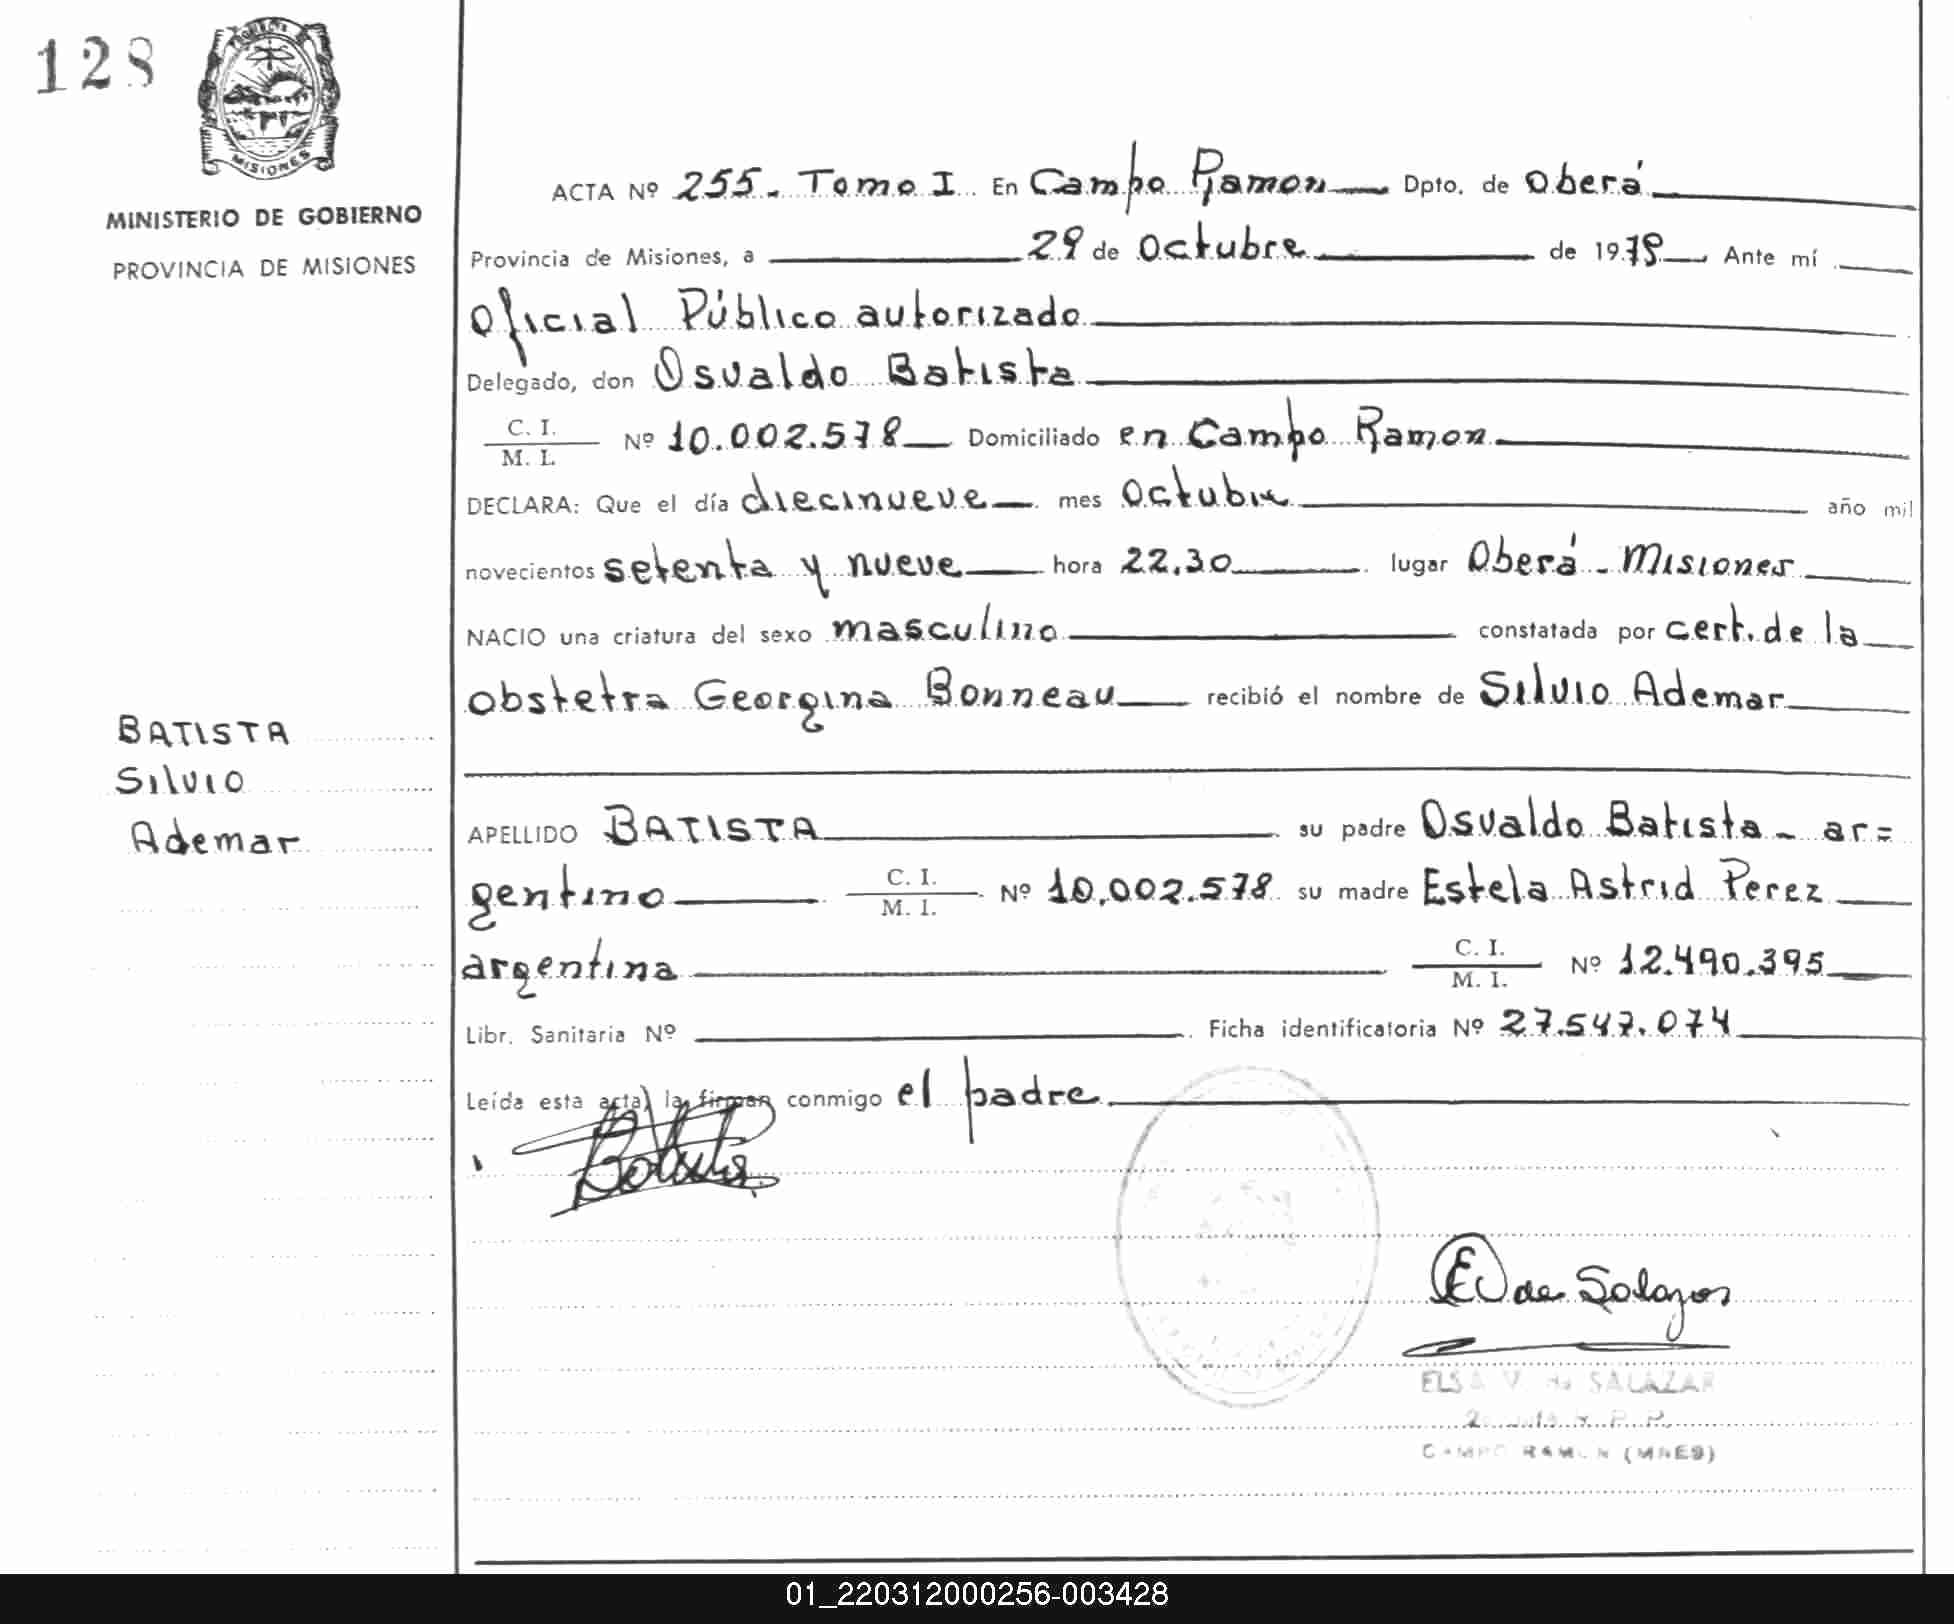 128
MISIONES
MINISTERIO DE GOBIERNO
PROVINCIA DE MISIONES
BATISTA
Silvio
Ademar
ACTA Nº 255. Tomo I En Campo Ramon Dpto. de Oberá
Provincia de Misiones, a 29 de Octubre de 1979 Ante mí
Oficial Público autorizado
Delegado, don Osvaldo Batista
C. I. / M. I. Nº 10.002.578 Domiciliado en Campo Ramon
DECLARA: Que el día diecinueve mes Octubre año mil
novecientos setenta y nueve hora 22.30 lugar Oberá - Misiones
NACIO una criatura del sexo masculino constatada por cert. de la
obstetra Georgina Bonneau recibió el nombre de Silvio Ademar
APELLIDO BATISTA su padre Osvaldo Batista - ar=
gentino C. I. / M. I. Nº 10.002.578 su madre Estela Astrid Perez
argentina C. I. / M. I. Nº 12.490.395
Libr. Sanitaria Nº Ficha identificatoria Nº 27.547.074
Leída esta acta, la firman conmigo el padre
Batista
E V de Salazar
ELSA V. de SALAZAR
R. P. P.
CAMPO RAMON (MNES)
01_220312000256-003428